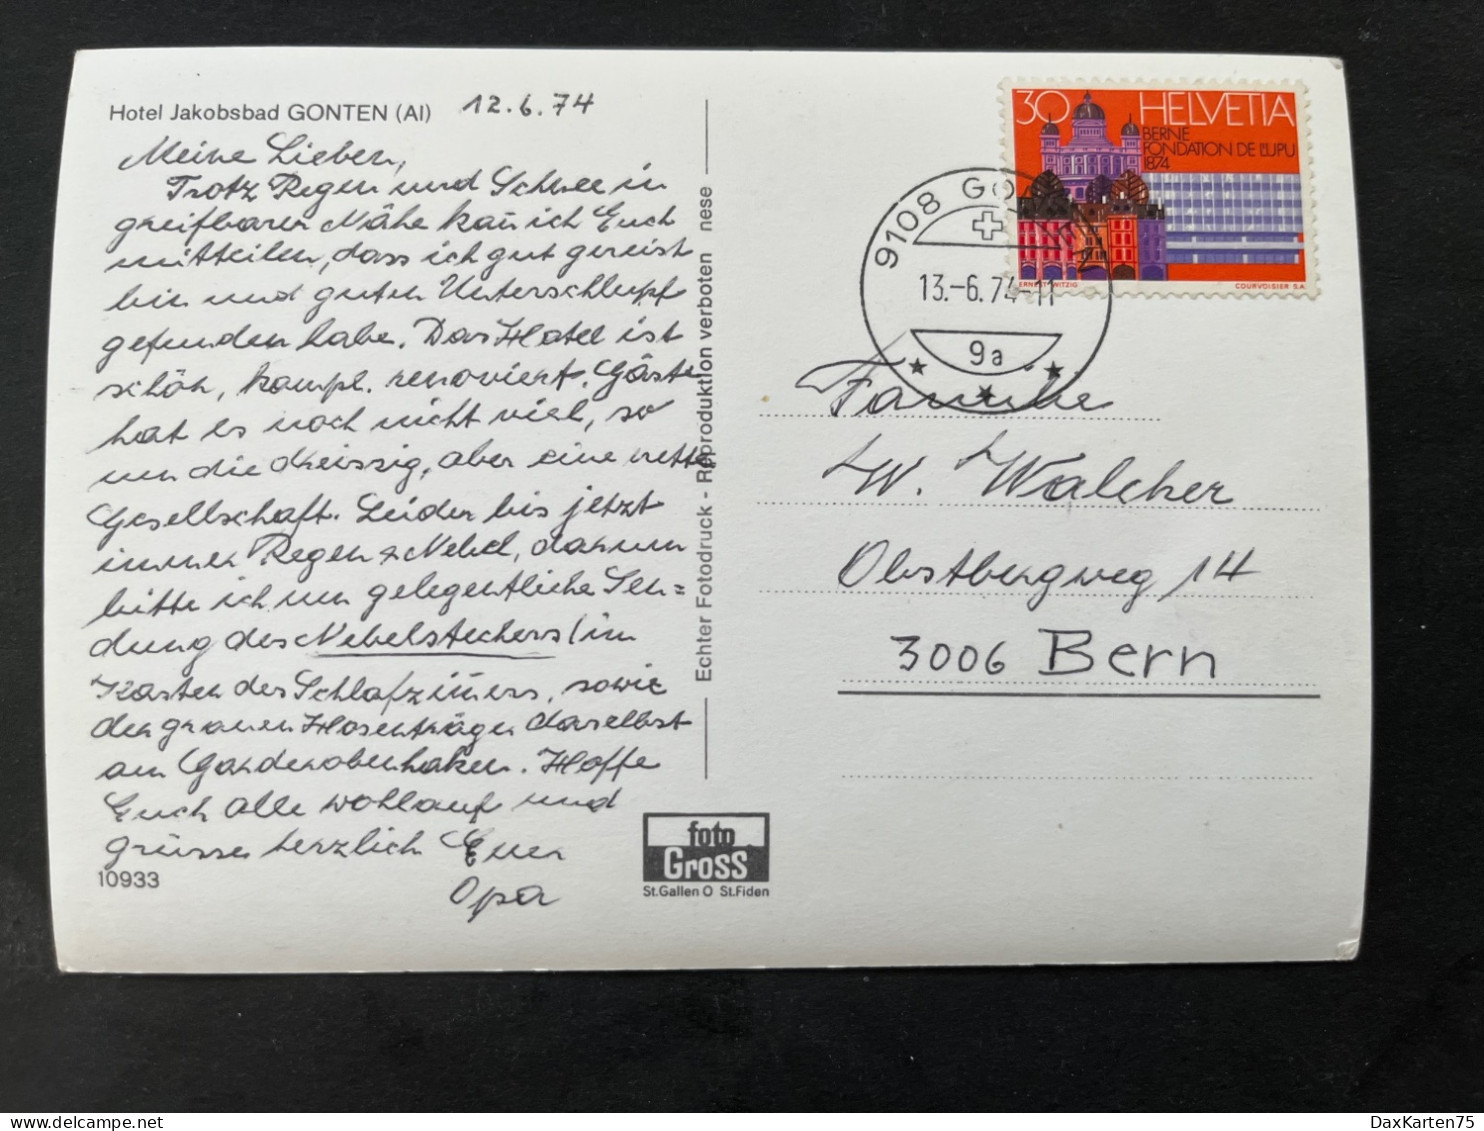 Hotel Jakobsbad GONTEN (AI) 12.6.74
Meine Lieben,
Trotz Regen und Schnee in
greifbarer Nähe kañ ich Euch
mitteilen, dass ich gut gereist
bin und guten Unterschlupf
gefunden habe. Das Hotel ist
schön, kompl. renoviert. Gäste
hat es noch nicht viel, so
um die dreissig, aber eine nette
Gesellschaft. Leider bis jetzt
immer Regen + Nebel, darum
bitte ich um gelegentliche Sen=
dung des Nebelstechers (im
Kasten des Schlafzim̄ers, sowie
der grauen Hosenträger daselbst
am Garderobenhaken. Hoffe
Euch alle wohlauf und
grüsse herzlich Euer
Opa
10933
Echter Fotodruck - Reproduktion verboten nese
foto
Gross
St.Gallen O St.Fiden
30 HELVETIA
BERNE
FONDATION DE L'UPU
1874
ERNST WITZIG COURVOISIER S.A.
9108 GONTEN
13.-6.74-11
9a
Familie
W. Walcher
Obstbergweg 14
3006 Bern
DaxKarten75
delcampe.net